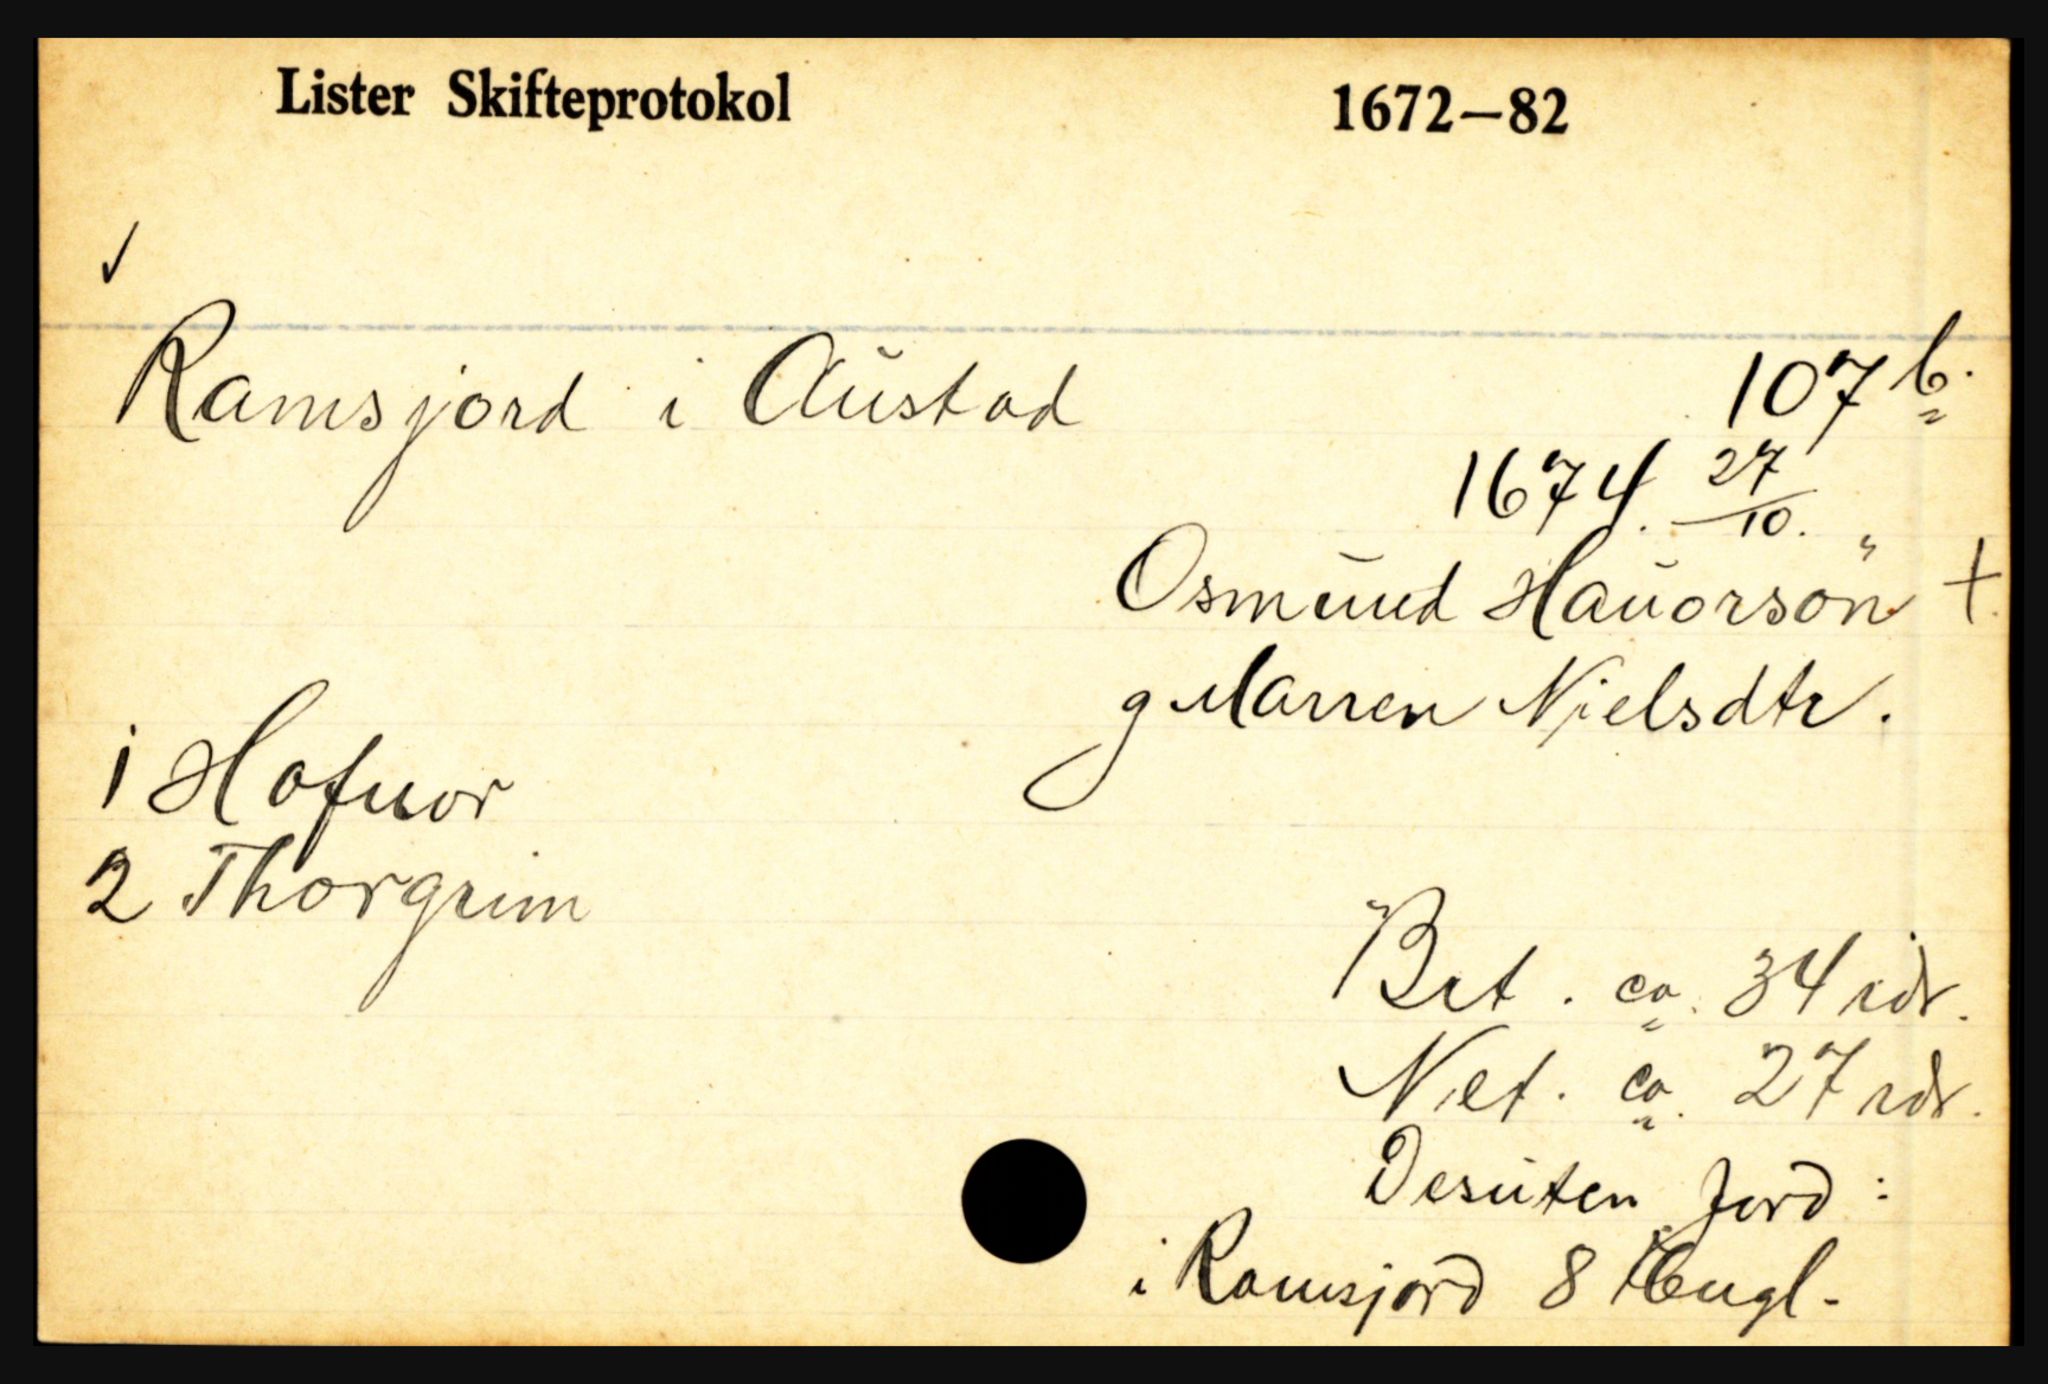 Lister Skifteprotokol 1672–82
✓
Ramsjord i Austad 107 b.
1674. 27/10.
Osmund Hauorson +
g Marren Nielsdtr.
1 Hafuor
2 Thorgrim
Brt. ca. 34 rdr.
Net. ca. 27 rdr.
Desuten Jord:
i Ramsjord 8 Engl.